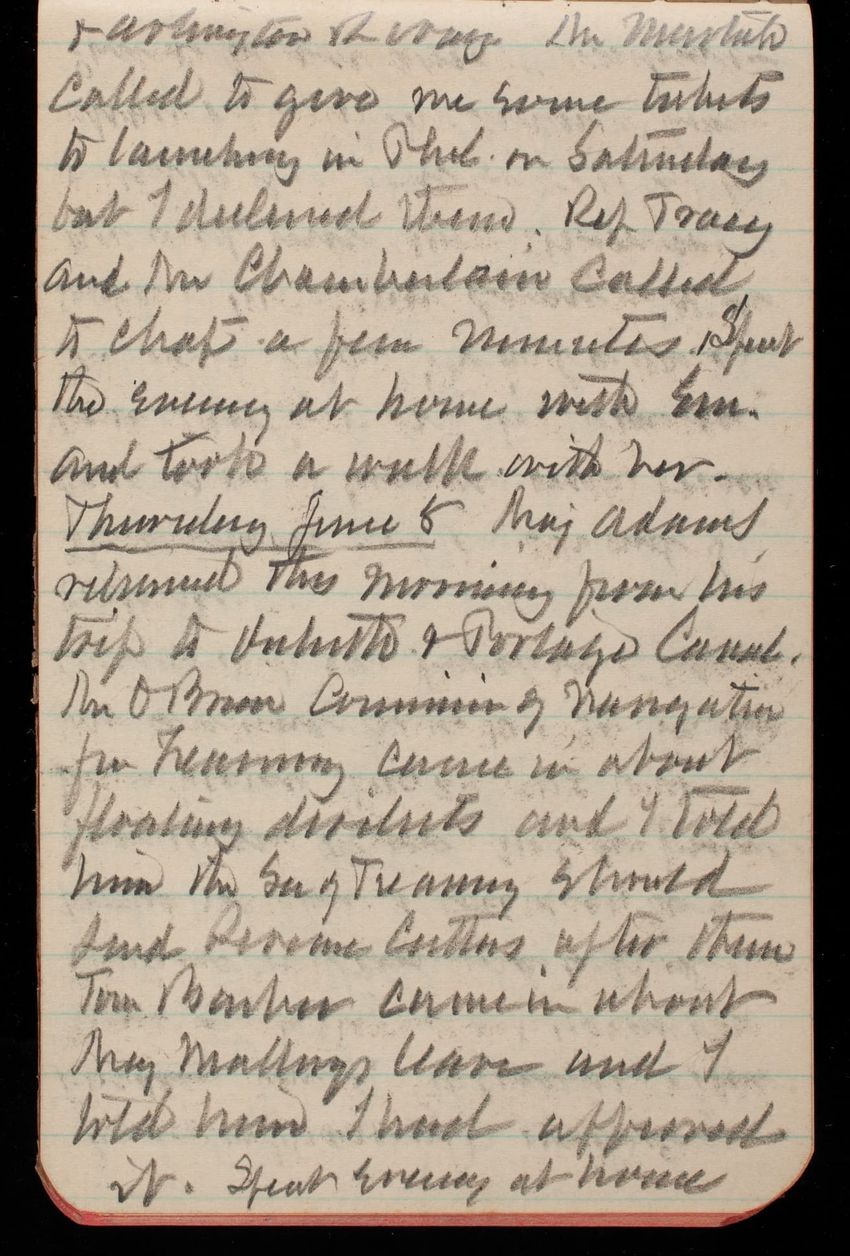 & Arlington
called to give me some tickets
to launching in Phil. on Saturday
but I declined them. Rep Tracey
and Mr Chamberlain called
to chat a few minutes. Spent
the evening at home with Em.
and took a walk with her.
Thursday June 8 Maj Adams
returned this morning from his
trip to Duluth & Portage Canal.
Mr O'Brien Commissioner of Navigation
for Treasury came in about
floating derelicts and I told
him the Sec of Treasury should
send Revenue Cutters after them
Tom Barber came in about
Maj leave and I
told him I had approved
it. Spent evening at home